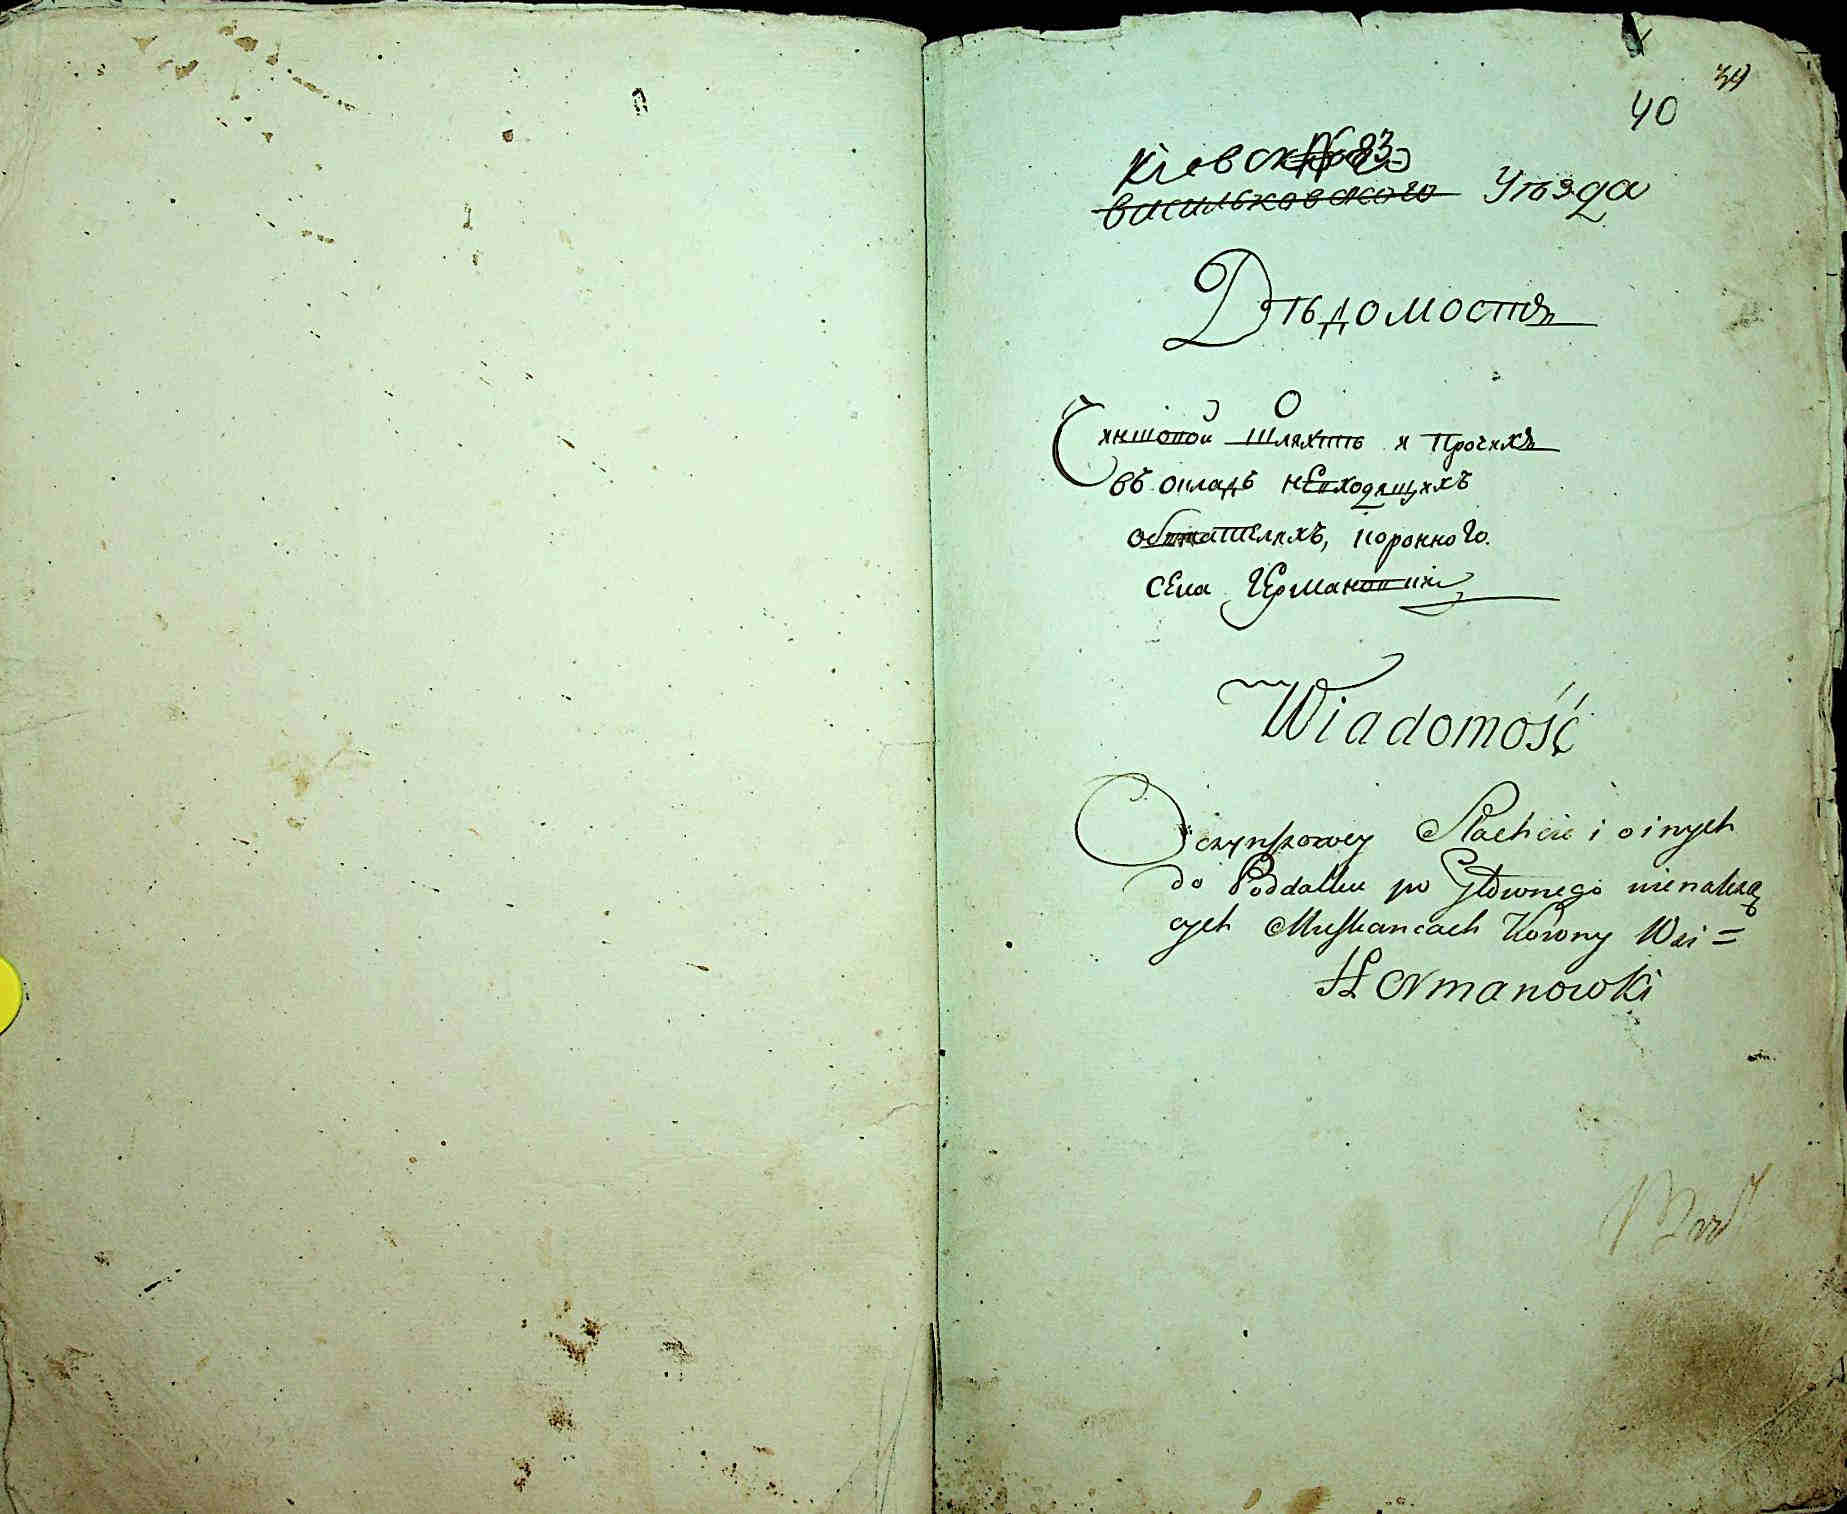 39
40
Кіевского № 83
васильковского Уѣзда
Вѣдомость
О
Чиншовой шляхтѣ и прочихъ
въ окладъ невходящихъ
обывателяхъ, коронного
села Германовки
Wiadomość
O czynszowey Szlachcie i oinych
do Poddatku po Głownego nienależą
cych Mieszkancach Korony Wsi =
Hermanowki